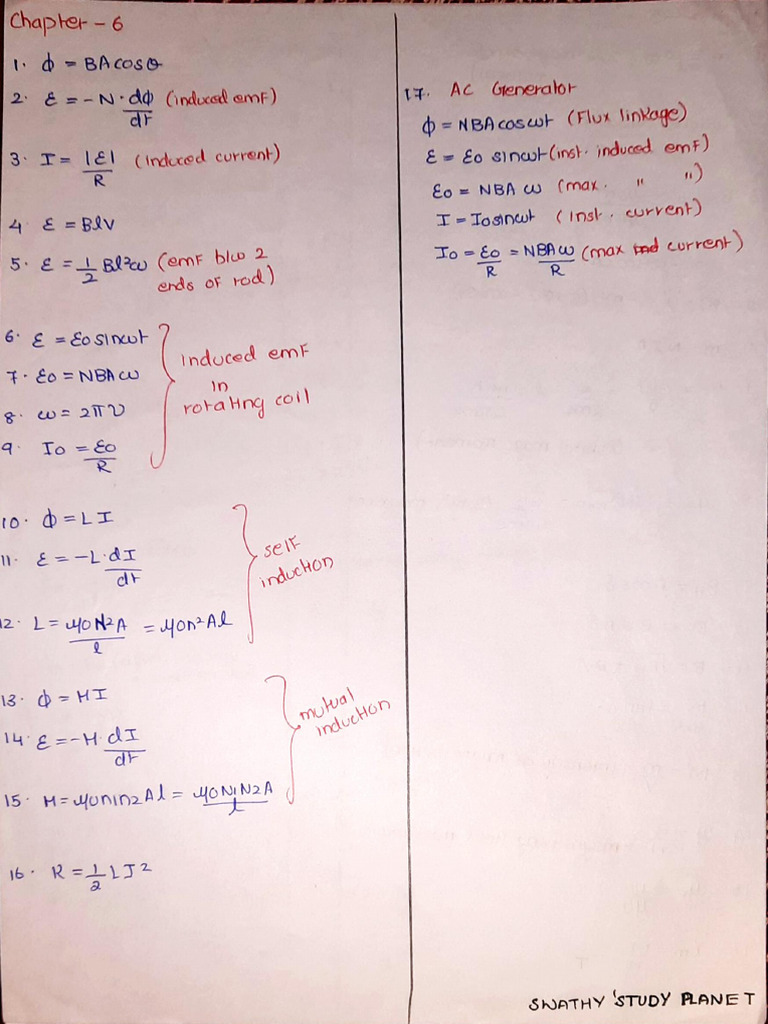 Chapter - 6
1. ϕ = BA cosθ
2. Ɛ = -N·dϕ/dt (induced emf)
3. I = |Ɛ|/R (induced current)
4. Ɛ = Blv
5. Ɛ = 1/2 Bl²ω (emf b/w 2
ends of rod)
6. Ɛ = Ɛ0 sinωt
7. Ɛ0 = NBAω
8. ω = 2πν
9. I0 = Ɛ0/R
induced emf
in
rotating coil
10. ϕ = LI
11. Ɛ = -L·dI/dt
12. L = μ0N²A/l = μ0n²Al
self
induction
13. ϕ = MI
14. Ɛ = -M·dI/dt
15. M = μ0n1n2Al = μ0N1N2A/l
mutual
induction
16. K = 1/2 LI²
17. AC Generator
ϕ = NBA cosωt (Flux linkage)
Ɛ = Ɛ0 sinωt (inst. induced emf)
Ɛ0 = NBAω (max. " ")
I = I0 sinωt (inst. current)
I0 = Ɛ0/R = NBAω/R (max current)
SWATHY 'STUDY PLANET